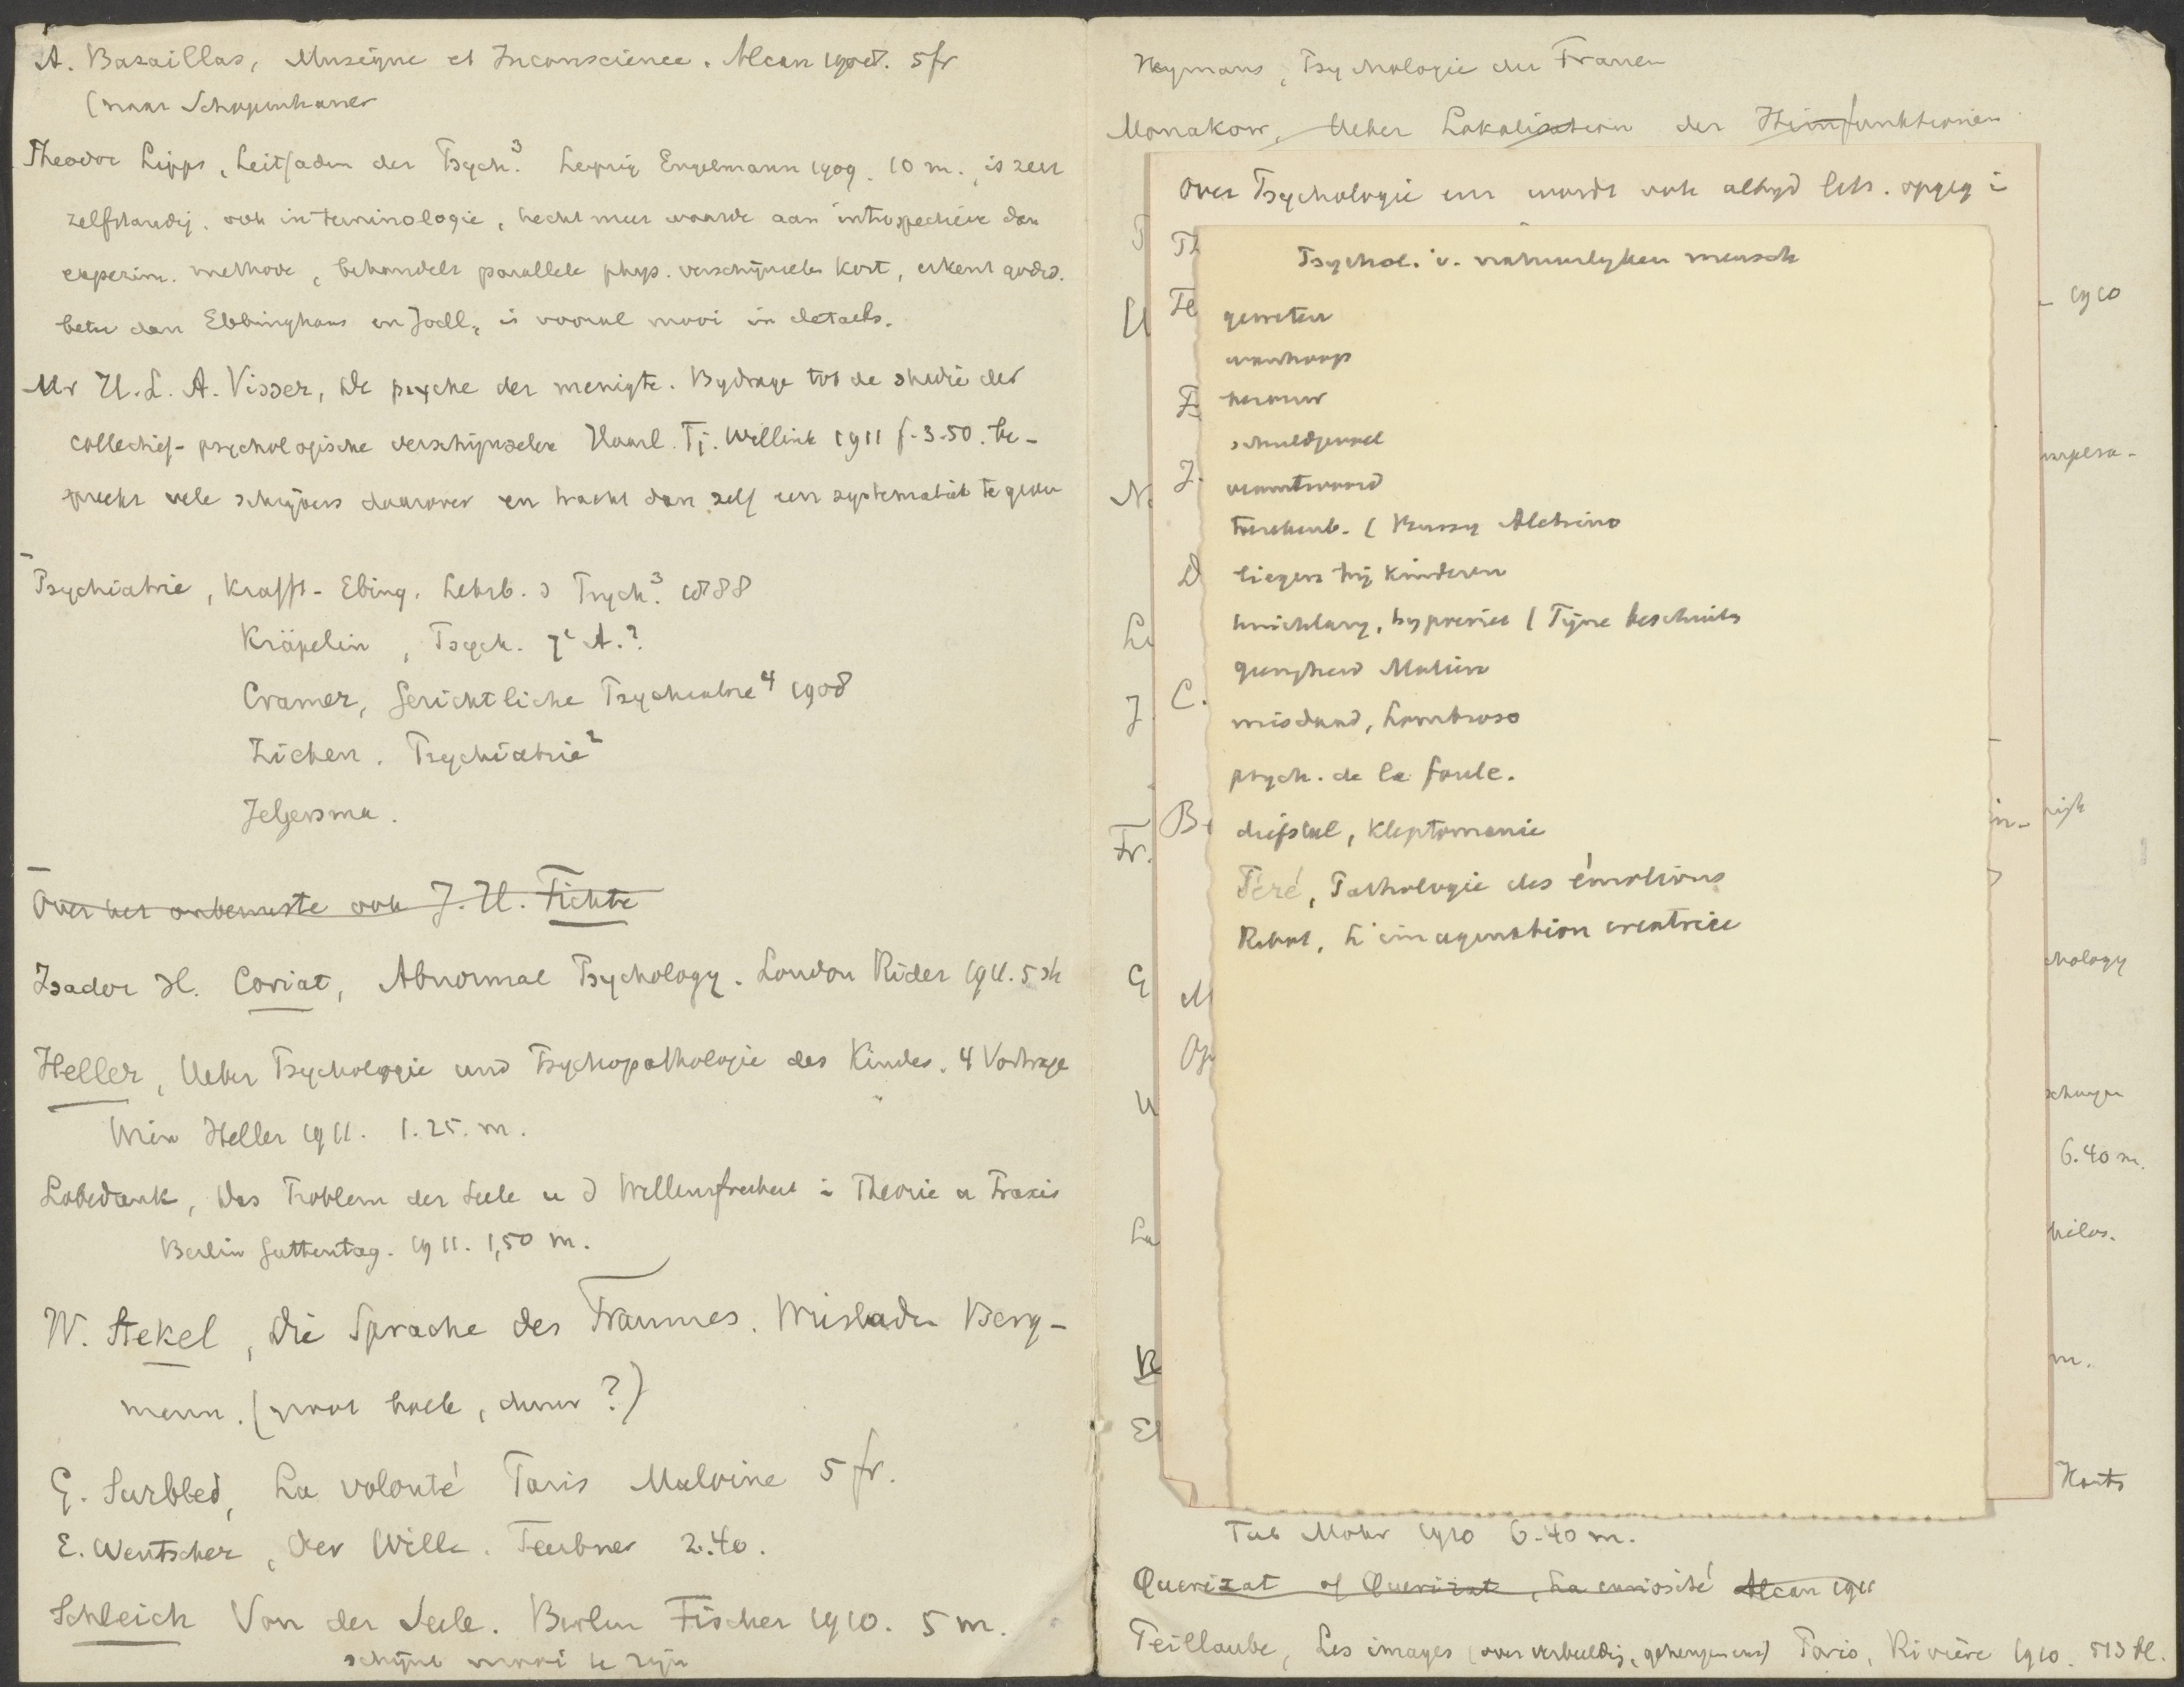 A. Bazaillas, Musique et Inconscience. Alcan 1908. 5 fr
(naar Schopenhauer
Theodor Lipps, Leitfaden der Psych.³ Leipzig Engelmann 1909. 10 m., is zeer
zelfstandig. ook in terminologie, hecht meer waarde aan introspectieve dan
experim. methode, behandelt parallele phys. verschijnselen kort, erkent godsd.
beter dan Ebbinghaus en Jodl, is vooral mooi in details.
Mr H. L. A. Visser, De psyche der menigte. Bydrage tot de studie der
collectief-psychologische verschijnselen Haarl. Tj. Willink 1911 f. 3.50. be-
spreekt vele schrijvers daarover en tracht dan zelf een systematiek te geven
Psychiatrie, Krafft-Ebing. Lehrb. d Psych.³ 1888
Kräpelin, Psych. 7e A.?
Cramer, Gerichtliche Psychiatrie⁴ 1908
Ziehen. Psychiatrie²
Jelgersma.
Over het onbewuste ook J. H. Fichte
Isador H. Coriat, Abnormal Psychology. London Rider 1911. 5 sh
Heller, Ueber Psychologie und Psychopathologie des Kindes. 4 Vorträge
Wien Heller 1911. 1.25. m.
Lobedank, Das Problem der Seele u d Willensfreiheit i Theorie u Praxis
Berlin Guttentag. 1911. 1,50 m.
W. Stekel, Die Sprache des Traumes. Wiesbaden Berg-
mann. (groot boek, duur?)
G. Surbled, La volonté Paris Maloine 5 fr.
E. Wentscher, Der Wille. Teubner 2.40.
Schleich Von der Seele. Berlin Fischer 1910. 5 m.
schijnt mooi te zijn
Heymans, Psychologie der Frauen
Monakow, Ueber Lokalisation der Hirnfunktionen
Over Psychologie enz wordt ook altyd litt. opgeg i
Psychol. v. natuurlyken mensch
geweten
wanhoop
berouw
schuldgevoel
verantwoord
toerekenb. (Bussy Aletrino
liegen bij kinderen
inrichtang, hypnose (Tijne beschuits
genegheid Malin
misdaad, Lombroso
psych. de la foule.
diefstal, kleptomanie
Féré, Pathologie des émotions
Ribot, L'imagination creatrice
1910
chology
6.40 m.
philos.
m.
Tüb Mohr 1910 6.40 m.
Querizat of Querizat, La curiosité Alcan 1911
Peillaube, Les images (over verbeelding, geheugen enz) Paris, Rivière 1910. 513 bl.